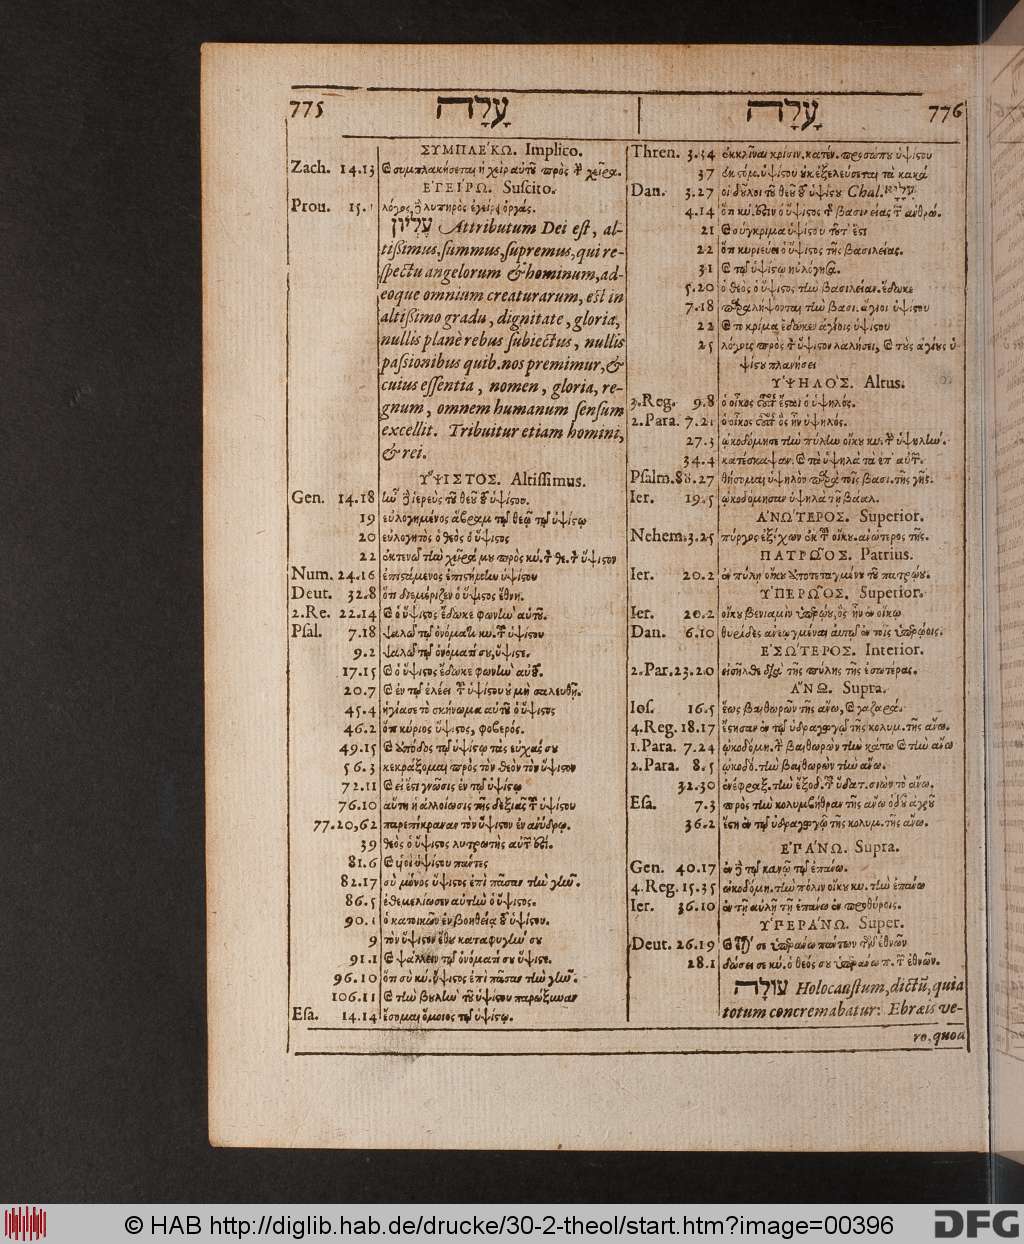 775 עָלָה
ΣΥΜΠΛΕΚΩ. Implico.
Zach. 14.13 συμπλακήσεται ἡ χεὶρ αὐτοῦ πρὸς χεῖρα.
ἘΓΕΊΡΩ. Suſcito.
Prou. 15.1 λόγος λυπηρὸς ἐγείρει ὀργάς.
עֶלְיוֹן Attributum Dei eſt, al-
tißimus, ſummus, ſupremus, qui re-
ſpectu angelorum & hominum, ad-
eoque omnium creaturarum, eſt in
altißimo gradu, dignitate, gloria,
nullis planè rebus ſubiectus, nullis
paßionibus quib. nos premimur, &
cuius eſſentia, nomen, gloria, re-
gnum, omnem humanum ſenſum
excellit. Tribuitur etiam homini,
& rei.
ὝΨΙΣΤΟΣ. Altiſſimus.
Gen. 14.18 ἱερεὺς τοῦ θεοῦ ὑψίστου.
19 εὐλογημένος ἄβραμ τῷ θεῷ τῷ ὑψίστῳ
20 εὐλογητὸς ὁ θεὸς ὁ ὕψιστος
22 ἐκτενῶ τὴν χεῖρά μου πρὸς κύ. θε. ὕψιστον
Num. 24.16 ἐπιστάμενος ἐπιστήμην ὑψίστου
Deut. 32.8 διεμέριζεν ὁ ὕψιστος ἔθνη.
2.Re. 22.14 ὁ ὕψιστος ἔδωκε φωνὴν αὐτοῦ.
Pſal. 7.18 ψαλῶ τῷ ὀνόματι κυ. ὑψίστου
9.2 ψαλῶ τῷ ὀνόματί σου, ὕψιστε.
17.15 ὁ ὕψιστος ἔδωκε φωνὴν αὐτοῦ.
20.7 ἐν τῷ ἐλέει ὑψίστου οὐ μὴ σαλευθῇ.
45.4 ἡγίασε τὸ σκήνωμα αὐτοῦ ὁ ὕψιστος
46.2 ὅτι κύριος ὕψιστος, φοβερός.
49.15 ἀπόδος τῷ ὑψίστῳ τὰς εὐχάς σου
56.3 κεκράξομαι πρὸς τὸν θεὸν τὸν ὕψιστον
72.11 εἰ ἔστι γνῶσις ἐν τῷ ὑψίστῳ
76.10 αὕτη ἡ ἀλλοίωσις τῆς δεξιᾶς ὑψίστου
77.20,62 παρεπίκραναν τὸν ὕψιστον ἐν ἀνύδρῳ.
39 θεὸς ὁ ὕψιστος λυτρωτὴς αὐτῶν ἐστί.
81.6 υἱοὶ ὑψίστου πάντες
82.17 σὺ μόνος ὕψιστος ἐπὶ πᾶσαν τὴν γῆν.
86.5 ἐθεμελίωσεν αὐτὴν ὁ ὕψιστος.
90.1 ὁ κατοικῶν ἐν βοηθείᾳ ὑψίστου.
9 τὸν ὕψιστον ἔθου καταφυγήν σου
91.1 ψάλλειν τῷ ὀνόματί σου ὕψιστε.
96.10 ὅτι σὺ κύ. ὕψιστος ἐπὶ πᾶσαν τὴν γῆν.
106.11 τὴν βουλὴν τοῦ ὑψίστου παρώξυναν
Eſa. 14.14 ἔσομαι ὅμοιος τῷ ὑψίστῳ.
עָלָה 776
Thren. 3.34 ἐκκλῖναι κρίσιν. κατέν. προσώπου ὑψίστου
37 ἐκ στόμ. ὑψίστου οὐκ ἐξελεύσεται τὰ κακά
Dan. 3.27 οἱ δοῦλοι τοῦ θεοῦ ὑψίστου Chal.
4.14 ὅτι κύ. ἐστιν ὁ ὕψιστος βασιλείας ἀνθρώ.
21 σύγκριμα ὑψίστου τοῦτ' ἔστι
22 ὅτι κυριεύει ὁ ὕψιστος τῆς βασιλείας.
31 τῷ ὑψίστῳ ηὐλόγησα.
5.20 ὁ θεὸς ὁ ὕψιστος τὴν βασιλείαν. ἔδωκε
7.18 παραλήψονται τὴν βασι. ἅγιοι ὑψίστου
22 τὸ κρίμα ἔδωκεν ἁγίοις ὑψίστου
25 λόγους πρὸς ὕψιστον λαλήσει, τοὺς ἁγίους ὑ-
ψίστου πλανήσει
ὙΨΗΛΌΣ. Altus.
3.Reg. 9.8 ὁ οἶκος οὗτος ἔσται ὁ ὑψηλός.
2.Para. 7.21 ὁ οἶκος οὗτος ὃς ἦν ὑψηλός.
27.3 ᾠκοδόμησε τὴν πύλην οἴκου κυ. ὑψηλήν.
34.4 κατέσκαψαν. τὰ ὑψηλὰ τὰ ἐπ' αὐτῶν.
Pſalm.88.27 θήσομαι ὑψηλὸν παρὰ τοῖς βασι. τῆς γῆς.
Ier. 19.5 ᾠκοδόμησαν ὑψηλὰ τῇ βάαλ.
ἈΝΏΤΕΡΟΣ. Superior.
Nehem. 3.25 πύργος ἐξέχων ἐκ οἴκου. ἀνώτερος τῆς.
ΠΑΤΡΩ͂ΟΣ. Patrius.
Ier. 20.2 ἐν πύλῃ οἴκου ἀποτεταγμένου τοῦ πατρῴου.
ὙΠΕΡΩ͂ΟΣ. Superior.
Ier. 20.2 οἴκου βενιαμὶν ὑπερῴου, ὃς ἦν ἐν οἴκῳ
Dan. 6.10 θυρίδες ἀνεῳγμέναι αὐτῷ ἐν τοῖς ὑπερῴοις.
ἘΣΏΤΕΡΟΣ. Interior.
2.Par. 23.20 εἰσῆλθε διὰ τῆς πύλης τῆς ἐσωτέρας.
ἌΝΩ. Supra.
Ioſ. 16.5 ἕως βαιθωρῶν τῆς ἄνω, γαζαρά.
4.Reg. 18.17 ἔστησαν ἐν τῷ ὑδραγωγῷ τῆς κολυμ. τῆς ἄνω.
1.Para. 7.24 ᾠκοδόμη. βαιθωρὼν τὴν κάτω τὴν ἄνω
2.Para. 8.5 ᾠκοδό. τὴν βαιθωρὼν τὴν ἄνω.
32.30 ἐνέφραξ. τὴν ἔξοδ. ὕδατ. σιὼν τὸ ἄνω.
Eſa. 7.3 πρὸς τὴν κολυμβήθραν τῆς ἄνω ὁδοῦ ἀγροῦ
36.2 ἔστη ἐν τῷ ὑδραγωγῷ τῆς κολυμ. τῆς ἄνω.
ἘΠΆΝΩ. Supra.
Gen. 40.17 ἐν τῷ κανῷ τῷ ἐπάνω.
4.Reg. 15.35 ᾠκοδόμη. τὴν πύλην οἴκου κυ. τὴν ἐπάνω
Ier. 36.10 ἐν τῇ αὐλῇ τῇ ἐπάνω ἐν προθύροις.
ὙΠΕΡΆΝΩ. Super.
Deut. 26.19 σε ὑπεράνω πάντων τῶν ἐθνῶν
28.1 δώσει σε κύ. ὁ θεός σου ὑπεράνω π. ἐθνῶν.
עוֹלָה Holocauſtum, dictū, quia
totum concremabatur: Ebræis ve-
ro, quod
© HAB http://diglib.hab.de/drucke/30-2-theol/start.htm?image=00396
DFG